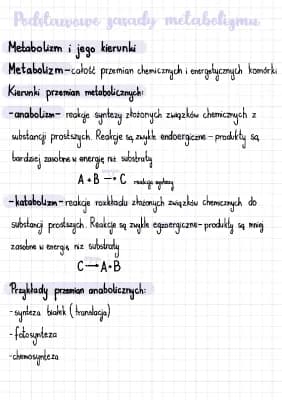 Podstawowe zasady metabolizmu
Metabolizm i jego kierunki
Metabolizm - całość przemian chemicznych i energetycznych komórki
Kierunki przemian metabolicznych:
- anabolizm - reakcje syntezy złożonych związków chemicznych z
substancji prostszych. Reakcje są zwykle endoergiczne - produkty są
bardziej zasobne w energię niż substraty
A + B → C reakcja syntezy
- katabolizm - reakcje rozkładu złożonych związków chemicznych do
substancji prostszych. Reakcje są zwykle egzoergiczne - produkty są mniej
zasobne w energię niż substraty
C → A + B
Przykłady przemian anabolicznych:
- synteza białek (translacja)
- fotosynteza
- chemosynteza